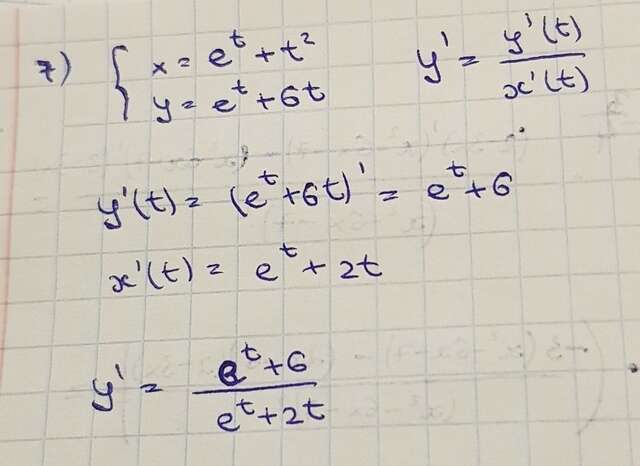 7) { x = e^t + t^2     y' = y'(t) / x'(t)
y = e^t + 6t
y'(t) = (e^t + 6t)' = e^t + 6
x'(t) = e^t + 2t
y' = (e^t + 6) / (e^t + 2t)